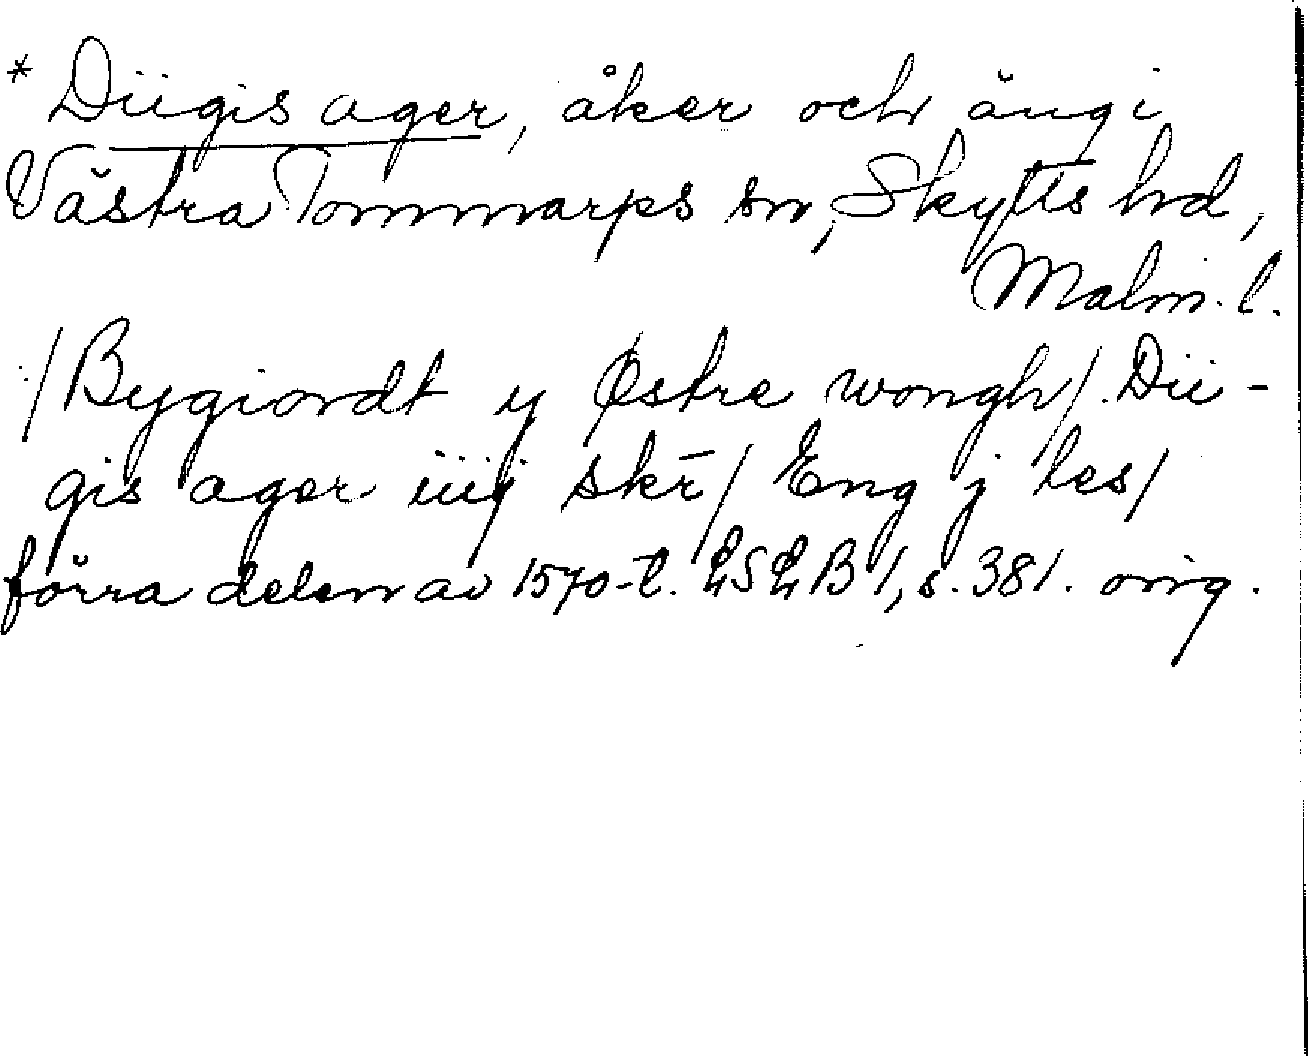 * Diigis ager, åker och äng i
Västra Tommarps sn, Skytts hd,
Malm. l.
/Bygiordt y Østre wongh/ Dii-
gis ager iiij skr̄/ Eng j les/
förra delen av 1570-t. LSLB 1, s. 381. orig.